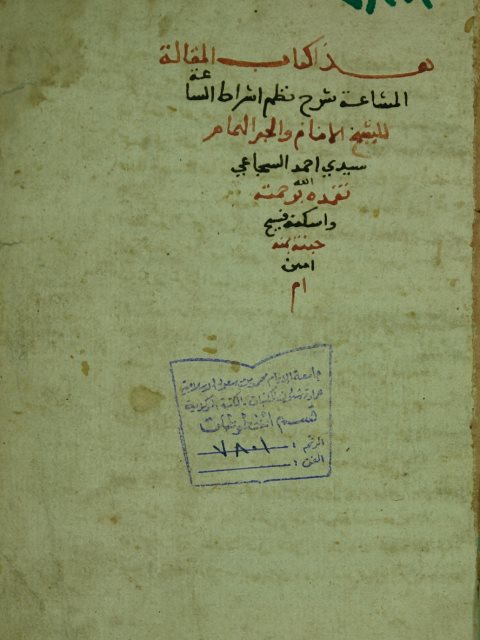 هذا كتاب المقالة
المشاعة شرح نظم اشراط الساعة
للشيخ الامام والحبر الهمام
سيدي احمد السجاعي
تغمده الله برحمته
واسكنه فسيح
جنته بمنه
امين
ام
جامعة الإمام محمد بن سعود الإسلامية
عمادة شؤون المكتبات - المكتبة المركزية
قسم المخطوطات
الرقم : ٧٨٠١
الفن :